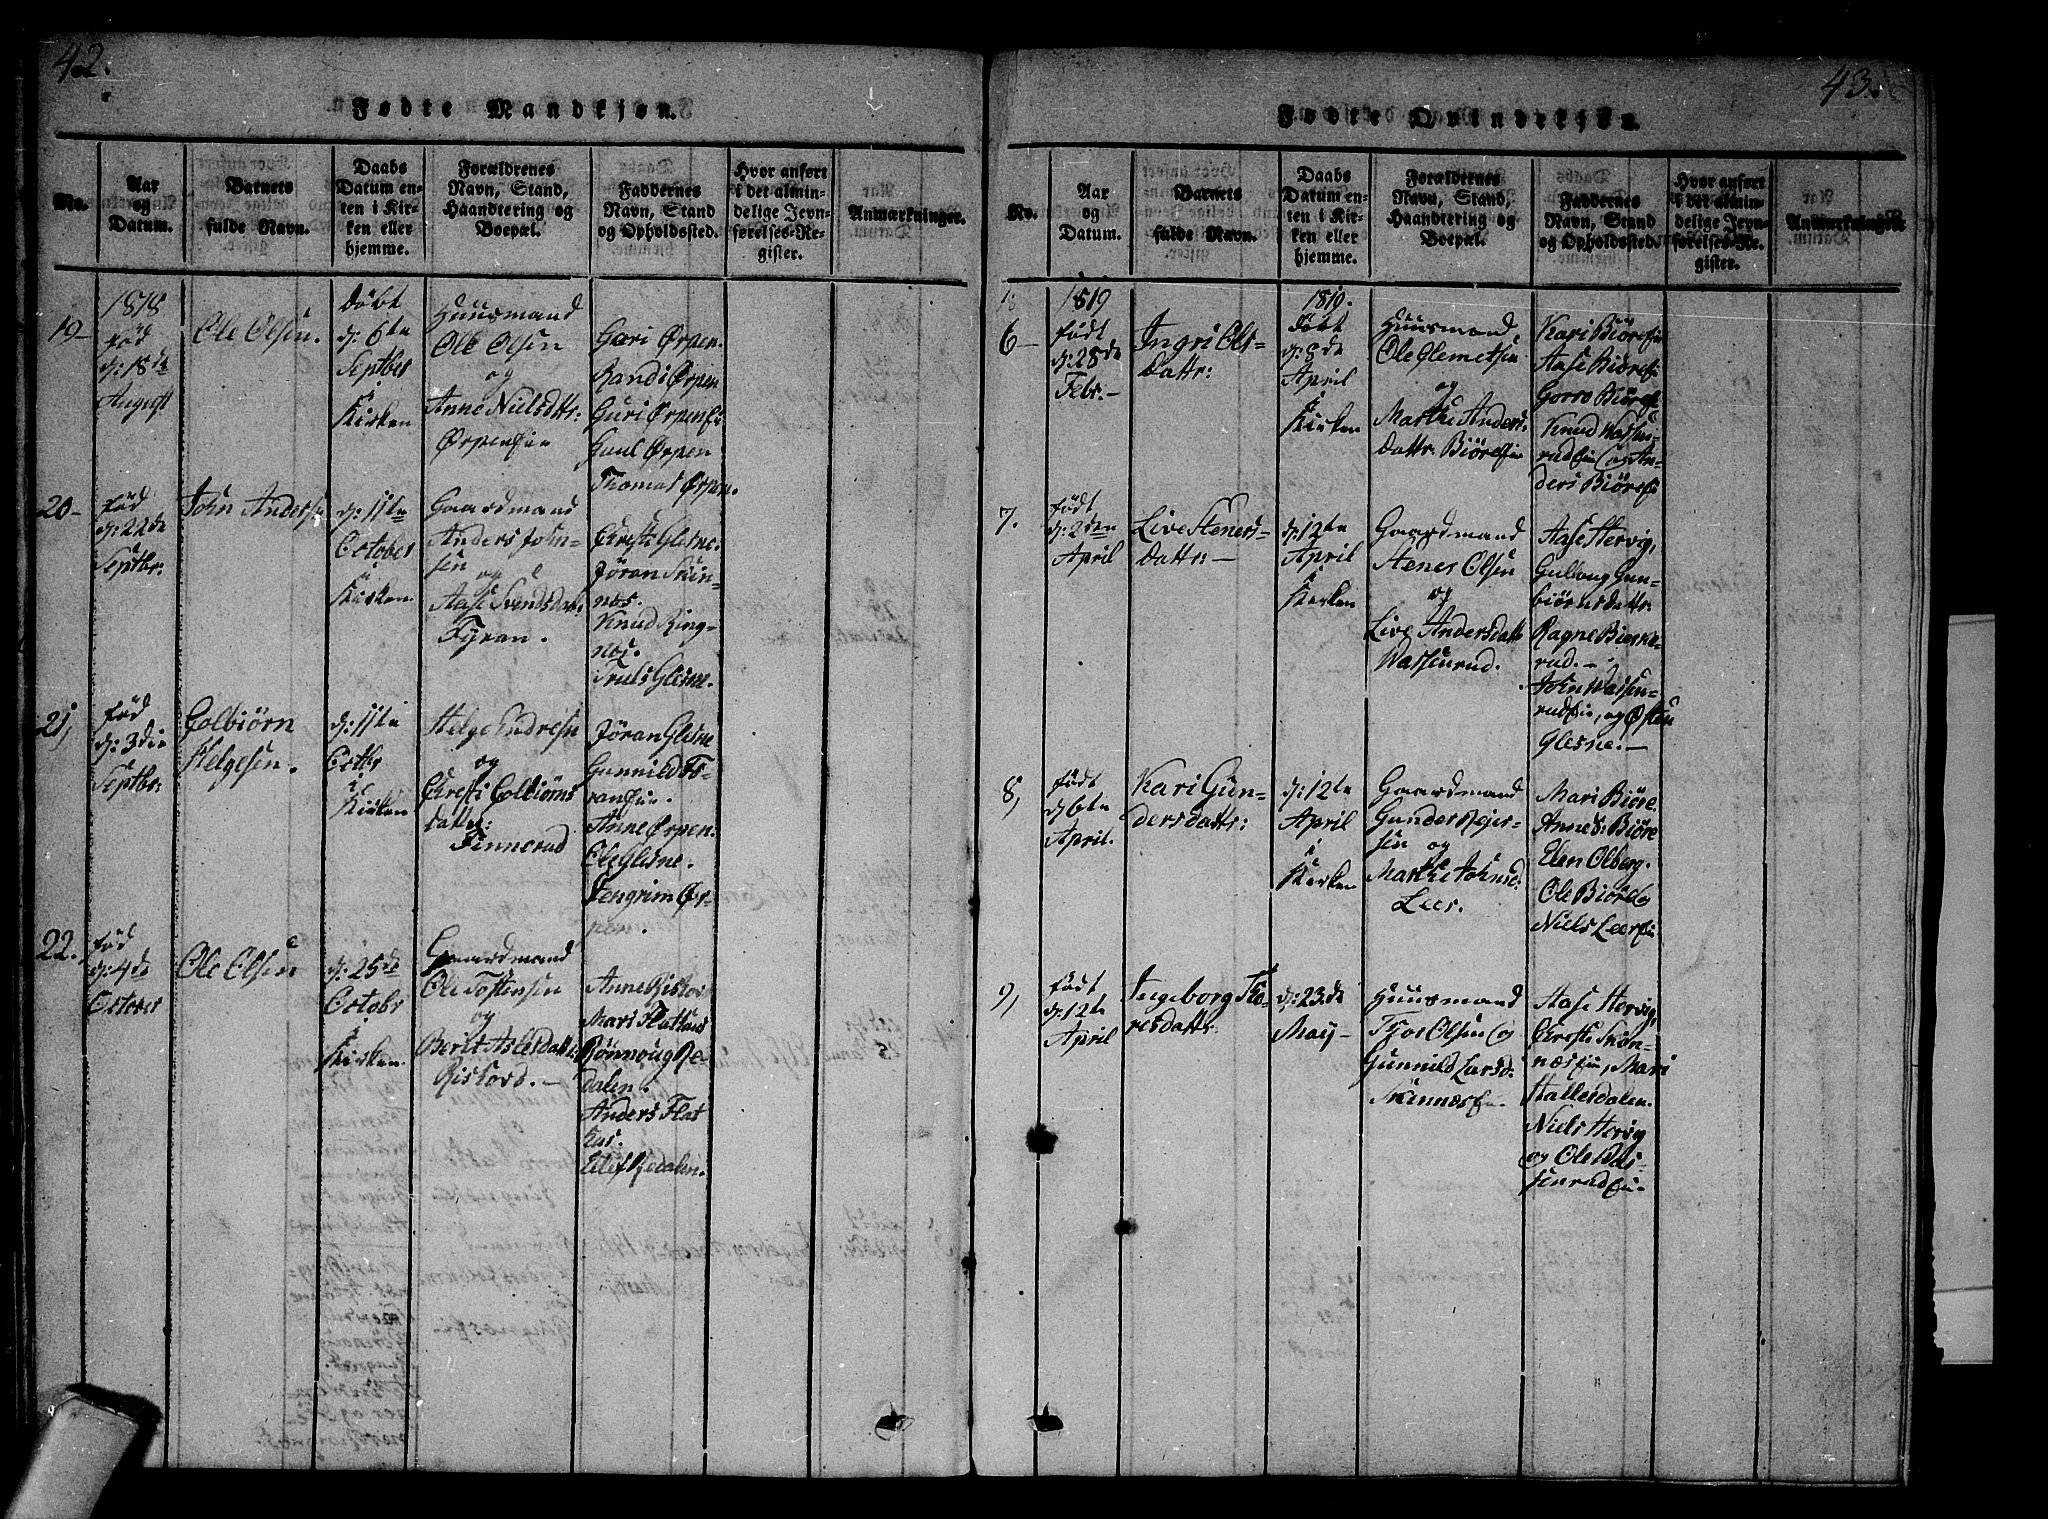 42.
Fødte Mandkjøn.
No.
Aar
og
Datum.
Barnets
fulde Navn.
Daabs
Datum en-
ten i Kir-
ken eller
hjemme.
Forældrenes
Navn, Stand,
Haandtering og
Boepæl.
Faddernes
Navn, Stand
og Opholdssted.
Hvor anført
i det almin-
delige Jevn-
førelses-Re-
gister.
Anmærkninger.
19-
1818
Fød
d: 18de
August
Ole Olsen.
Døbt
d: 6te
Septber
i
Kirken
Huusmand
Ole Olsen
og
Anne Nielsdttr:
Ørpen
Gæri Ørpen.
Randi Ørpen
Guri Ørpen
Gaul Ørpen
Thomas Ørpen.
20-
Fød
d: 22de
Septbr:
John Anders
d: 11te
October
i
Kirken.
Gaardmand
Anders John-
sen
og
Aase Svendsdatr
Fyran.
Chresti Glesne.
Jøran Skin-
næs.
Knud Ring-
næs.
Truls Glesne.
21,
Fød
d: 3die
Septbr:
Colbiørn
Helgesen.
d: 11te
Octbr
i
Kirken
Helge Endresen
og
Chresti Colbiørns
datter:
Finnerud
Jøran Glesne
Gunnild Fy-
ran
Anne Ørpen.
Ole Glesne.
Stengrim Ør-
pen.
22.
Fød
d: 4de
October
Ole Olsen
d: 25de
Octobr
i
Kirken.
Gaardmand
Ole Tostensen
og
Berit Aslesdattr
Ristord.-
Anne Ristord
Mari Flattaas
Rønnoug Re-
dalen.
Anders Flat
kas.
Ellef Redalen.
43.
Fødte Qvindekjøn.
No.
Aar
og
Datum.
Barnets
fulde Navn.
Daabs
Datum en-
ten i Kir-
ken eller
hjemme.
Forældrenes
Navn, Stand,
Haandtering og
Boepæl.
Faddernes
Navn, Stand
og Opholdssted.
Hvor anført
i det almin-
delige Jevn-
førelses-Re-
gister.
Anmærkninger
6-
1819
Født
d: 28de
Febr.-
Ingri Ols-
Dattr:
1819.
Døbt
d: 8de
April
i
Kirken
Huusmand
Ole Clemetsen
og
Marthe Anders-
Dattr. Biøre
Kari Biøre
Aase Biøre
Gorro Biøre
Knud Wassen-
rud og An-
ders Biøre
7.
Født
d: 2den
April
Live Steners-
Dattr:-
d: 12te
April
i
Kirken
Gaardmand
Stener Olsen
og
Live Andersdattr
Wassenrud.
Aase Hervig,
Gulloug Gun-
biørnsdattr:
Ragne Bierke-
rud.-
John Wassen-
rud, og Østen
Glesne.-
8,
Født
d: 6te
April.
Kari Gun-
dersdattr:
d: 12te
April
i
Kirken
Gaardmand
Gunder Rejer-
sen og
Marthe Johnsd:
Leer.
Mari Biøre.
Anne S: Biøre
Elen Olberg.
Ole Biøre og
Niels Leer
9,
Født
d: 12te
April
Ingeborg Tho-
resdattr:
d: 23.de
May-
Huusmand
Thor Olsen og
Gunnild Larsd:
Skinnæs
Aase Hervig,
Chresti Skin-
næs, Mari
Hallesdalen.
Niels Hervig
og Ole Was-
senrud